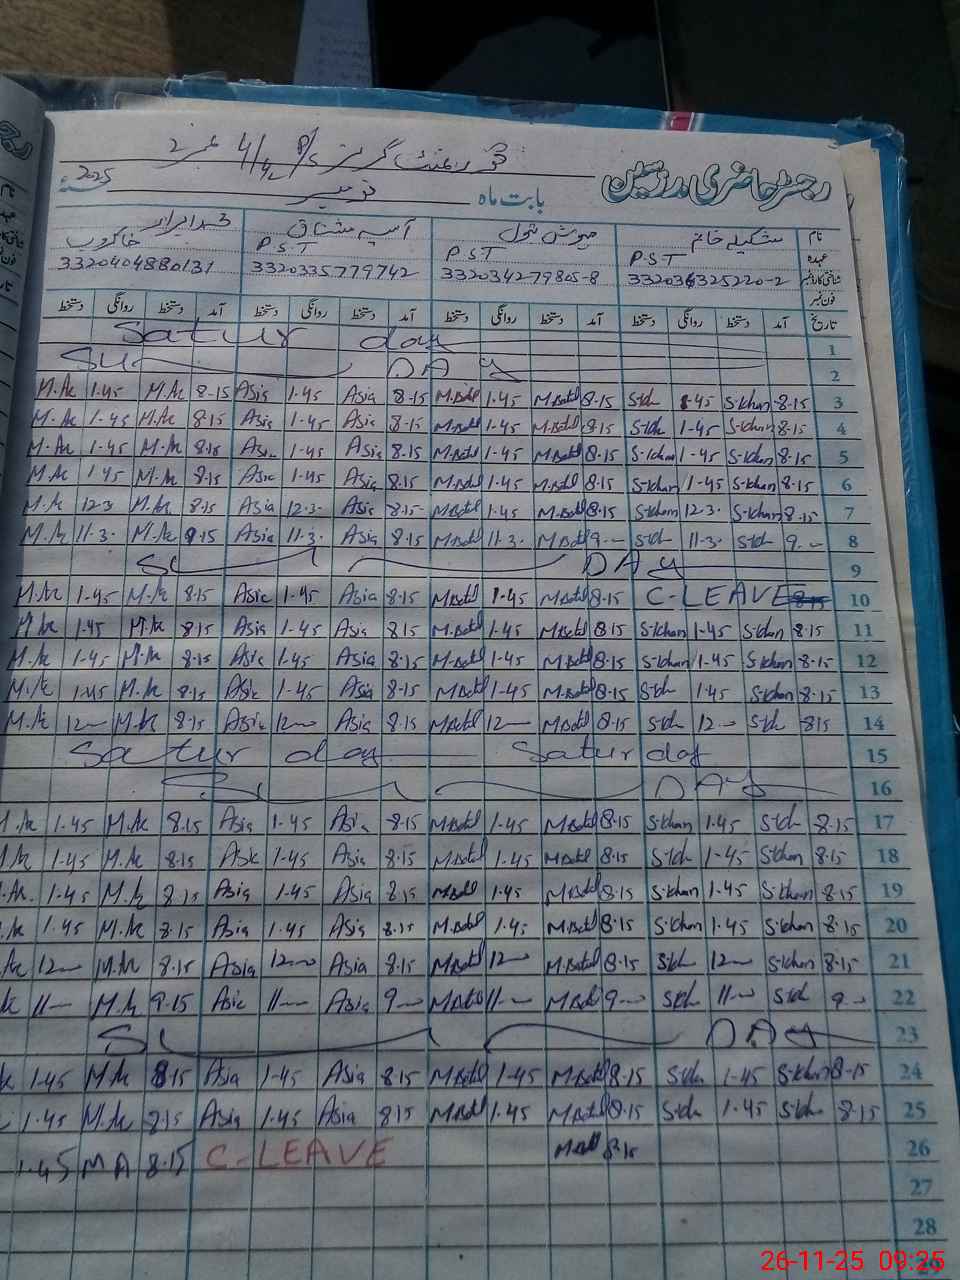 رجسٹر حاضری مدرسین
گورنمنٹ گرلز P/S 4/4L نمبر 2
بابت ماہ نومبر 2025
نام شکیلہ خانم آسیہ مشتاق
عہدہ P.S.T P.S.T P.S.T خاکروب
شناختی کارڈ نمبر 3320342279805-8 3320335779742 3320404880131
فون نمبر
تاریخ آمد دستخط روانگی دستخط آمد دستخط روانگی دستخط آمد دستخط روانگی دستخط آمد دستخط روانگی دستخط
Satur day 1
SU DAY 2
M.Ak 1-45 M.Ak 8-15 Asia 1-45 Asia 8-15 M.Batul 1-45 M.Batul 8-15 S-kh 1-45 S-khan 8-15 3
M.Ak 1-45 M.Ak 8-15 Asia 1-45 Asia 8-15 M.Batul 1-45 M.Batul 8-15 S-kh 1-45 S-khan 8-15 4
M.Ak 1-45 M.Ak 8-15 Asia 1-45 Asia 8.15 M.Batul 1-45 M.Batul 8-15 S-khan 1-45 S-khan 8-15 5
M.Ak 1-45 M.Ak 8-15 Asia 1-45 Asia 8.15 M.Batul 1-45 M.Batul 8-15 S-khan 1-45 S-khan 8-15 6
M.Ak 12-3 M.Ak 8-15 Asia 12-3. Asia 8-15 M.Batul 1-45 M.Batul 8-15 S-khan 12-3. S-khan 8-15 7
M.Ak 11-3. M.Ak 8-15 Asia 11-3. Asia 8-15 M.Batul 11-3. M.Batul 9-00 S-kh 11-3. S-kh 9-00 8
SU DAY 9
M.Ak 1-45 M.Ak 8-15 Asia 1-45 Asia 8-15 M.Batul 1-45 M.Batul 8-15 C-LEAVE 8-15 10
M.Ak 1-45 M.Ak 8-15 Asia 1-45 Asia 8-15 M.Batul 1-45 M.Batul 8-15 S-khan 1-45 S-khan 8-15 11
M.Ak 1-45 M.Ak 8-15 Asia 1-45 Asia 8-15 M.Batul 1-45 M.Batul 8-15 S-khan 1-45 S-khan 8-15 12
M.Ak 1-45 M.Ak 8-15 Asia 1-45 Asia 8-15 M.Batul 1-45 M.Batul 8-15 S-kh 1-45 S-khan 8-15 13
M.Ak 12-00 M.Ak 8-15 Asia 12-00 Asia 8-15 M.Batul 12-00 M.Batul 8-15 S-kh 12-00 S-kh 8-15 14
Satur day Satur day 15
SU DAY 16
M.Ak 1-45 M.Ak 8-15 Asia 1-45 Asia 8-15 M.Batul 1-45 M.Batul 8-15 S-khan 1-45 S-kh 8-15 17
M.Ak 1-45 M.Ak 8-15 Asia 1-45 Asia 8-15 M.Batul 1-45 M.Batul 8-15 S-kh 1-45 S-khan 8-15 18
M.Ak 1-45 M.Ak 8-15 Asia 1-45 Asia 8-15 M.Batul 1-45 M.Batul 8-15 S-khan 1-45 S-khan 8-15 19
M.Ak 1-45 M.Ak 8-15 Asia 1-45 Asia 8-15 M.Batul 1-45 M.Batul 8-15 S-khan 1-45 S-khan 8-15 20
M.Ak 12-00 M.Ak 8-15 Asia 12-00 Asia 8-15 M.Batul 12-00 M.Batul 8-15 S-kh 12-00 S-khan 8-15 21
11-00 M.Ak 9-15 Asia 11-00 Asia 9-00 M.Batul 11-00 M.Batul 9-00 S-kh 11-00 S-kh 9-00 22
SU DAY 23
1-45 M.Ak 8-15 Asia 1-45 Asia 8-15 M.Batul 1-45 M.Batul 8-15 S-kh 1-45 S-khan 8-15 24
1-45 M.Ak 8-15 Asia 1-45 Asia 8-15 M.Batul 1-45 M.Batul 8-15 S-kh 1-45 S-kh 8-15 25
1-45 MA 8-15 C-LEAVE 8-15 26
27
28
26-11-25 09:25